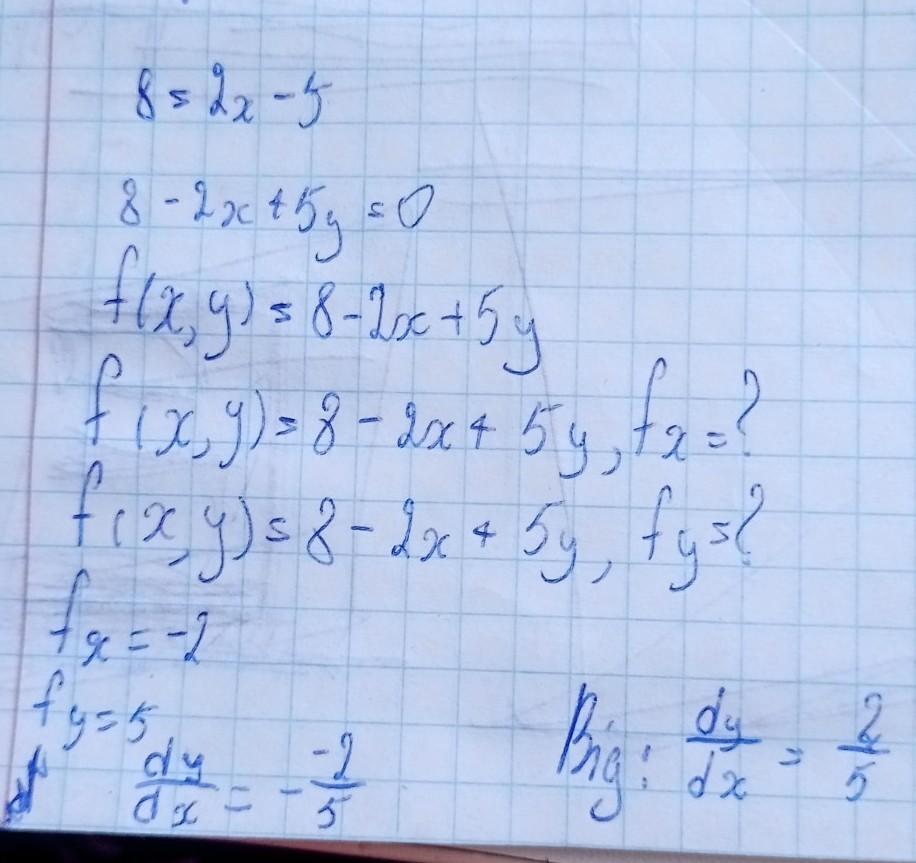 8 = 2x - 5
8 - 2x + 5y = 0
f(x, y) = 8 - 2x + 5y
f(x, y) = 8 - 2x + 5y, fx = ?
f(x, y) = 8 - 2x + 5y, fy = ?
fx = -2
fy = 5
dy/dx = - -2/5
Big: dy/dx = 2/5